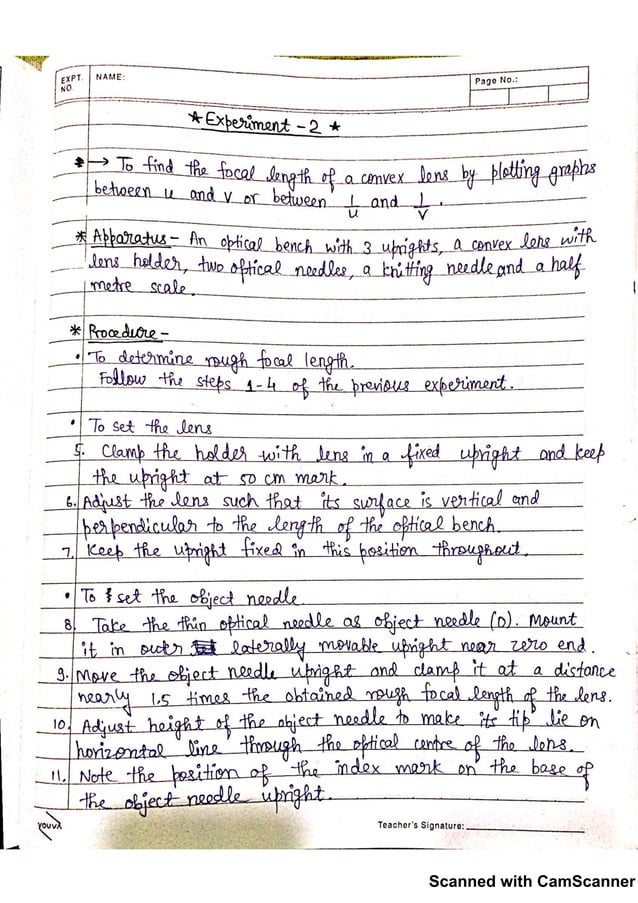 EXPT. NO. NAME: Page No.:
* Experiment - 2 *
→ To find the focal length of a convex lens by plotting graphs
between u and v or between 1/u and 1/v .
* Apparatus - An optical bench with 3 uprights, a convex lens with
lens holder, two optical needles, a knitting needle and a half
metre scale.
* Procedure -
• To determine rough focal length.
Follow the steps 1-4 of the previous experiment.
• To set the lens
5. Clamp the holder with lens in a fixed upright and keep
the upright at 50 cm mark.
6. Adjust the lens such that its surface is vertical and
perpendicular to the length of the optical bench.
7. Keep the upright fixed in this position throughout.
• To set the object needle
8. Take the thin optical needle as object needle (O). Mount
it in outer laterally movable upright near zero end.
9. Move the object needle upright and clamp it at a distance
nearly 1.5 times the obtained rough focal length of the lens.
10. Adjust height of the object needle to make its tip lie on
horizontal line through the optical centre of the lens.
11. Note the position of the index mark on the base of
the object needle upright.
YOUVA Teacher's Signature:
Scanned with CamScanner